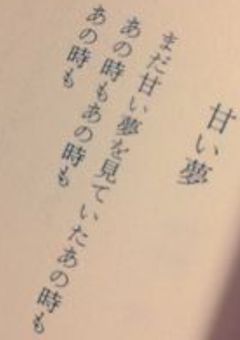 甘い夢
まだ甘い夢を見ていたあの時も
あの時もあの時も
あの時も